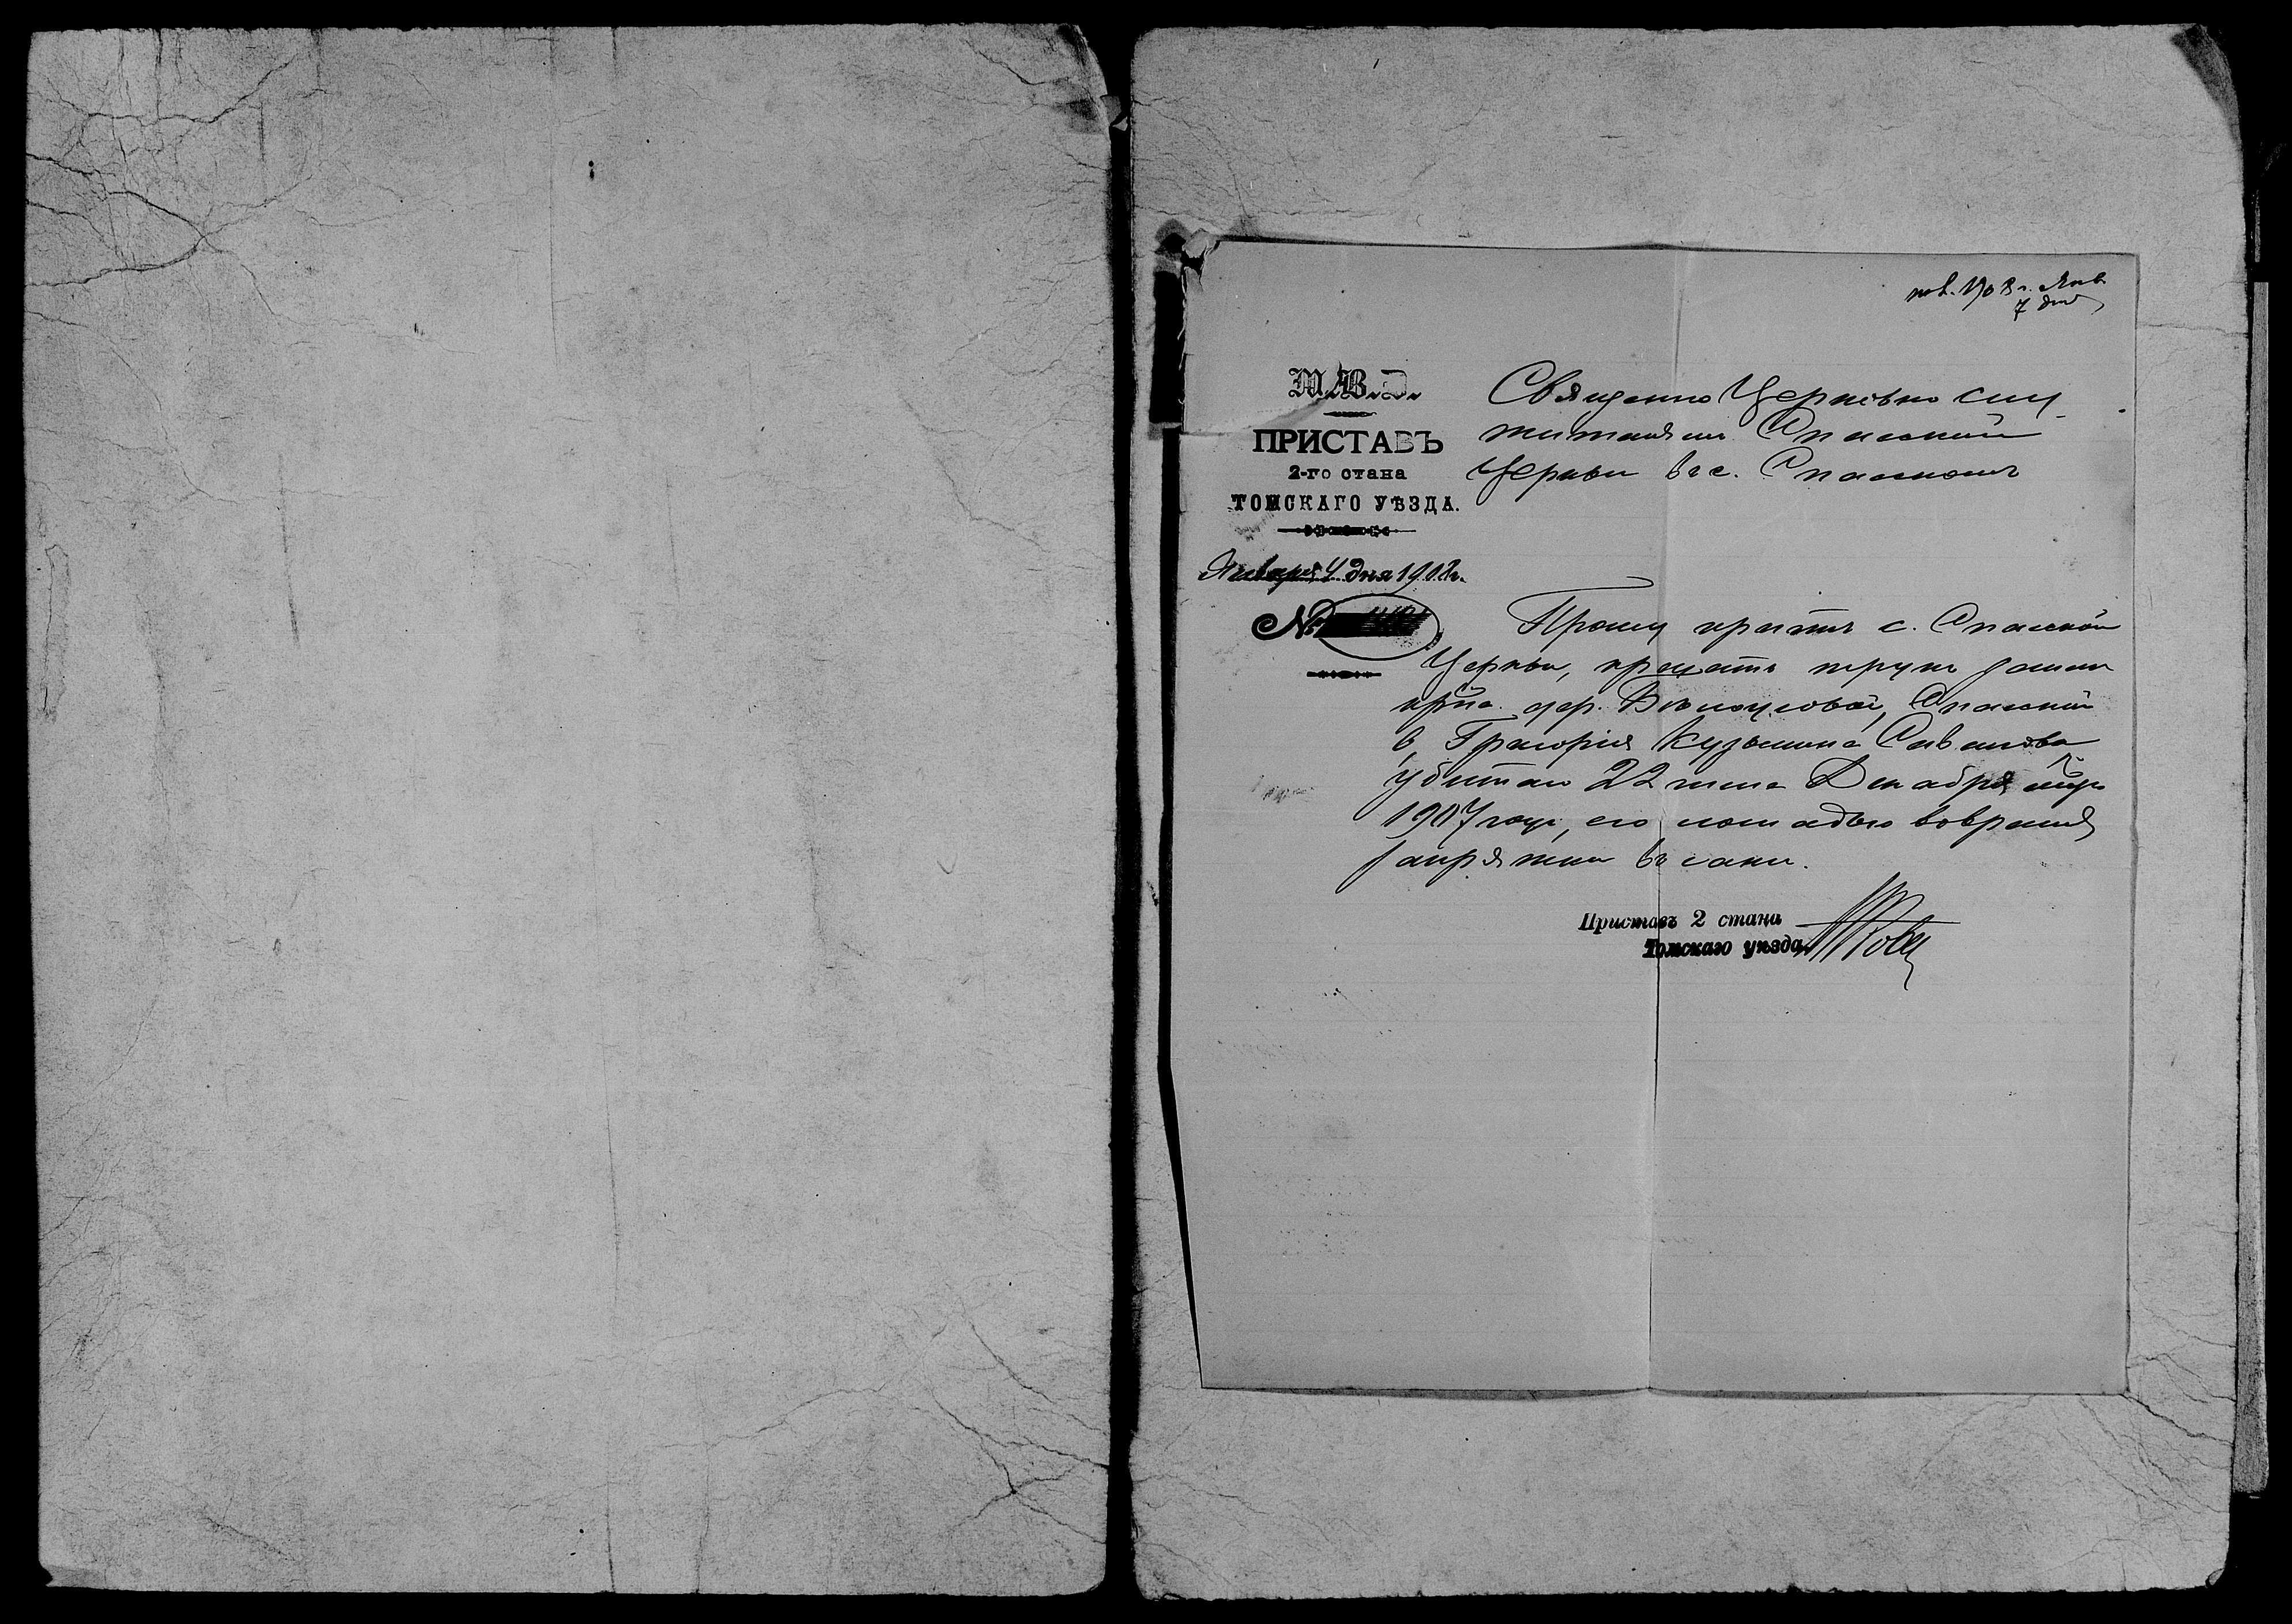 пол. 1908 г. Янв.
7 дня
М.В.Д.
ПРИСТАВЪ
2-го стана
ТОМСКАГО УѢЗДА.
Января 4 дня 1908 г.
№
Священно Церковно слу
жителямъ Спасской
Церкви въ с. Спасскомъ
Прошу причтъ с. Спасской
Церкви, трупъ
дер. Спасской
в, Григорія Кузьмина
убитаго 22 числа Декабря мца
1907 года, его лошадью во время
запряжки въ сани.
Приставъ 2 стана
Томскаго уѣзда